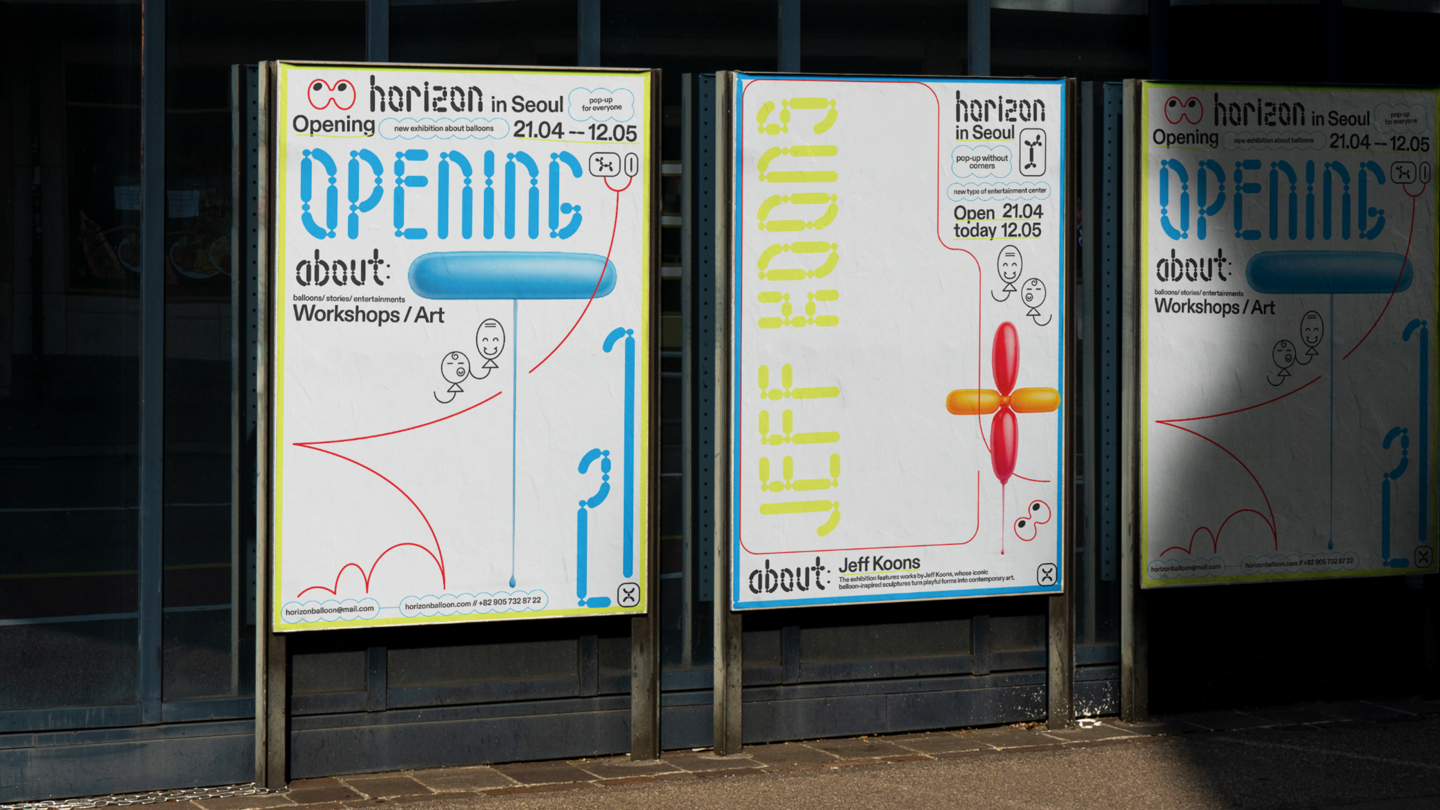 horizon in Seoul
pop-up
for everyone
Opening
new exhibition about balloons
21.04 -- 12.05
OPENING
about:
balloons/ stories/ entertainments
Workshops / Art
21
horizonballoon@mail.com
horizonballoon.com // +82 905 732 87 22
JEFF KOONS
horizon
in Seoul
pop-up without
corners
new type of entertainment center
Open 21.04
today 12.05
about:
Jeff Koons
The exhibition features works by Jeff Koons, whose iconic
balloon-inspired sculptures turn playful forms into contemporary art.
horizon in Seoul
pop-up
for everyone
Opening
new exhibition about balloons
21.04 -- 12.05
OPENING
about:
balloons/ stories/ entertainments
Workshops / Art
21
horizonballoon@mail.com
horizonballoon.com // +82 905 732 87 22